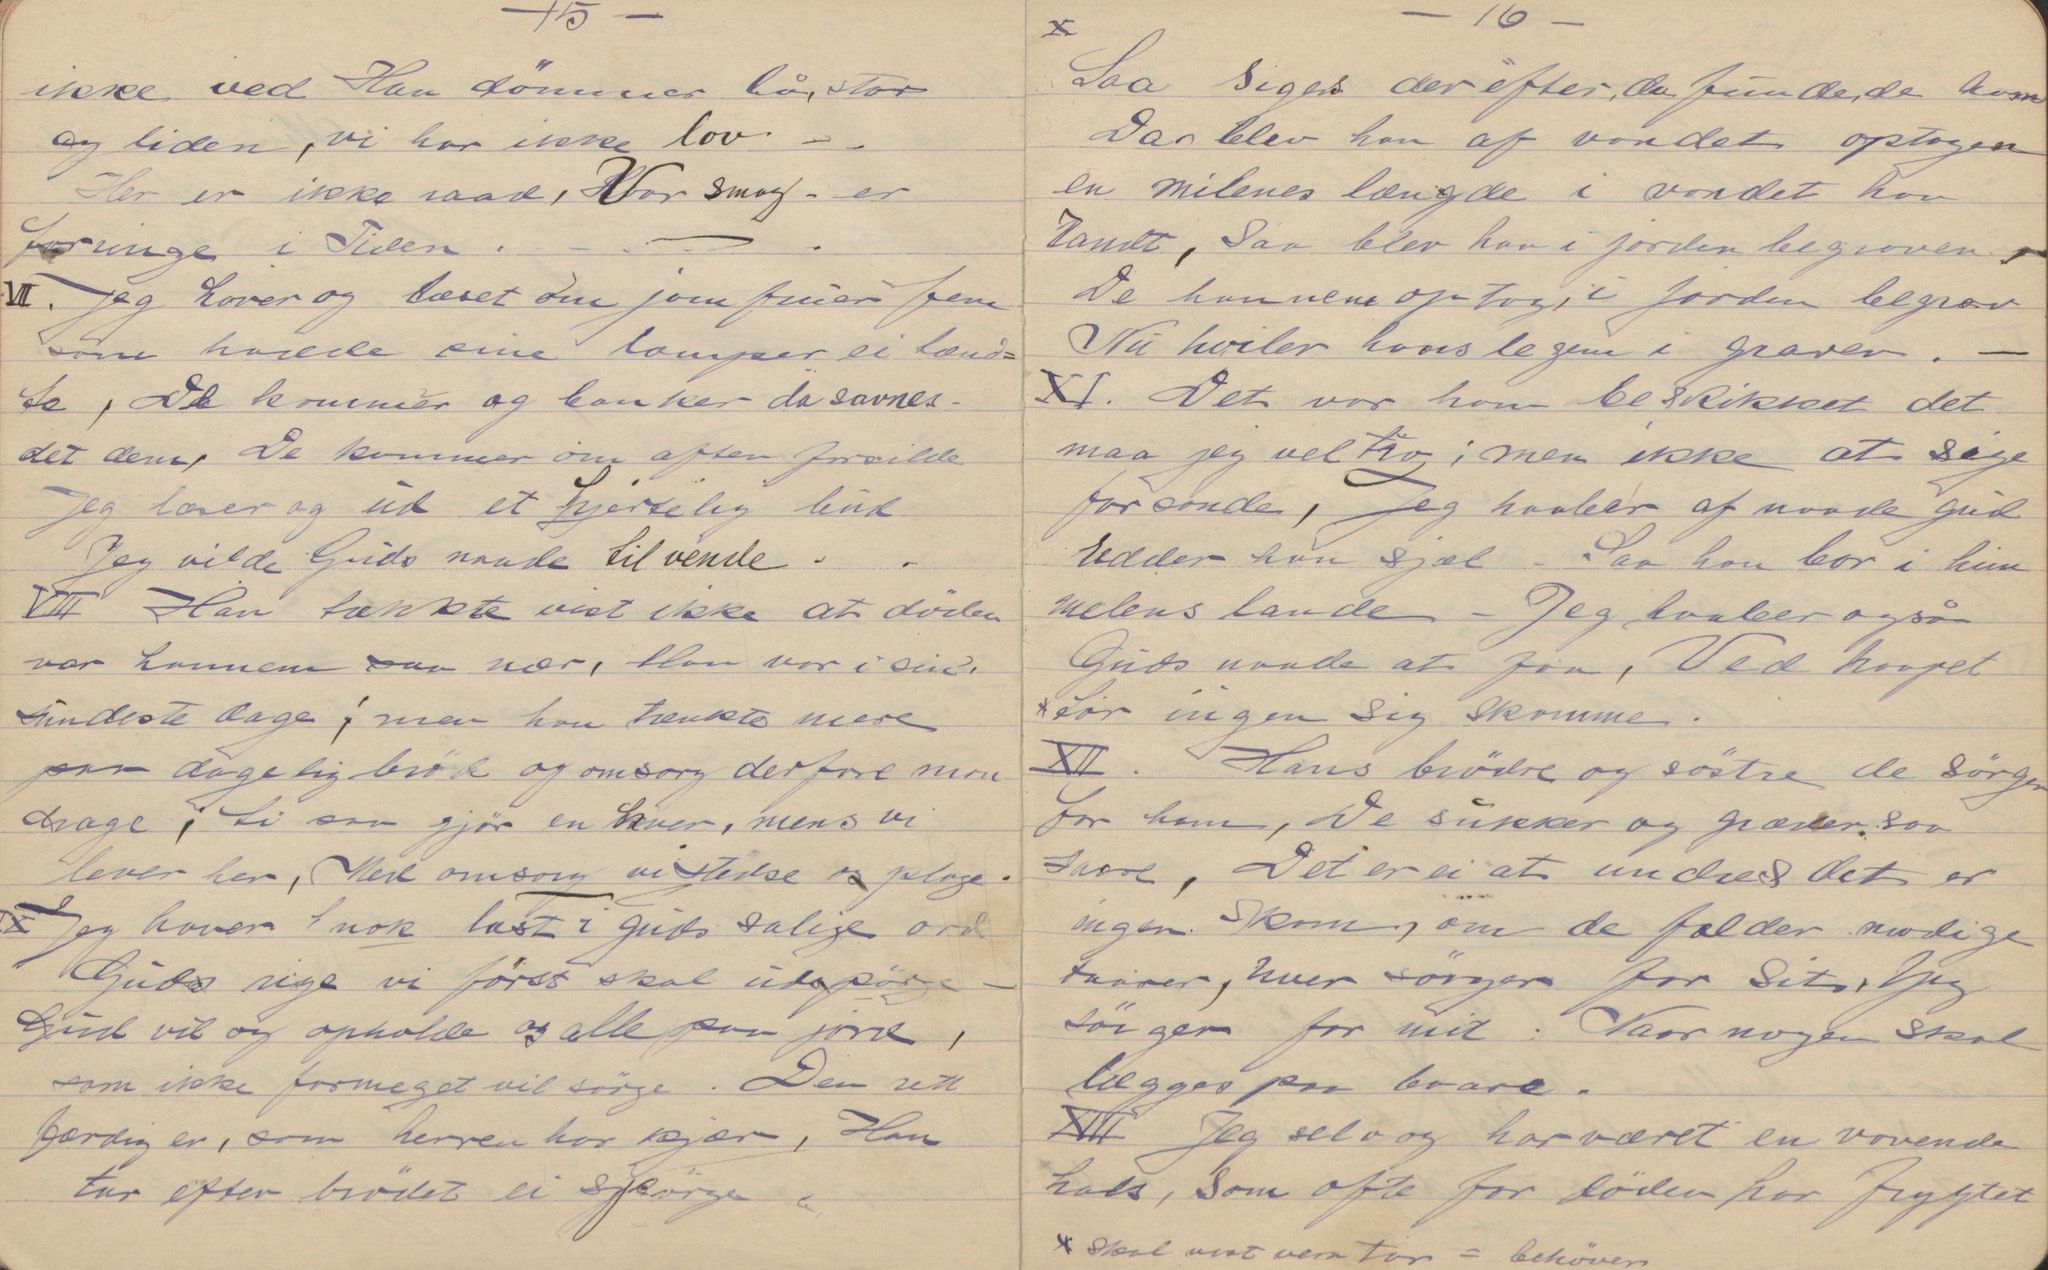 — 15 —
ikke ved Han dömmer bå, stor
og liden, vi har ikke lov — -
Her er ikke raad, Vor smag - er
foringe i Tiden . - . — .
VII. Jeg haver og læset om jomfruer fem
som havde sine lamper ei tænd=
te, De kommer og banker da savnes-
det dem, De kommer om aften forsilde
Jeg læser og ud et hjertelig bud
Jeg vilde Guds naade til vende - .
VIII Han tænkte vist ikke at döden
var hannem saa nær, Han var i sin'
sundeste dage; men han tænkte mere
paa dagelig bröd og omsorg derfore mon
drage; ti saa gjör en hver, mens vi
lever her, Med omsorg vi stedse os plage.
IX Jeg haver nok læst i Guds salige ord
Guds rige vi först skal udspörge —
Gud vil og opholde os alle paa jord,
som ikke formeget vil sörge. Den rett
færdig er, som herren har kjær, Han
tar efter brödet ei sörge .
— 16 —
X
Saa siges der efter, da funde, de ham
Da blev han af vandet optagen
en milenes længde i vandet han
vandt, Saa blev han i jorden begraven,
De hannem optog, i jorden begrov
Nu hviler hans legem i graven. —
XI. Det var ham beskikket det
maa jeg vel tro; men ikke at sige
for sande, Jeg haaber af naade Gud
redder han sjæl - Saa han bor i him
melens lande - Jeg haaber også
Guds naade at faa, Ved haapet
* Lar ingen sig skamme.
XII. Hans brödre og söstre de sörger
for ham, De sukker og græder saa
saare, Det er ei at undres det er
ingen skam, om de fælder modige
taarer, hver sörger for sit, Jeg
sörger for mit : Naar nogen skal
lægges paa baare.
XIII Jeg selv og har været en vovende
hals, Som ofte for döden har frygtet
* skal vist være tör = behöver